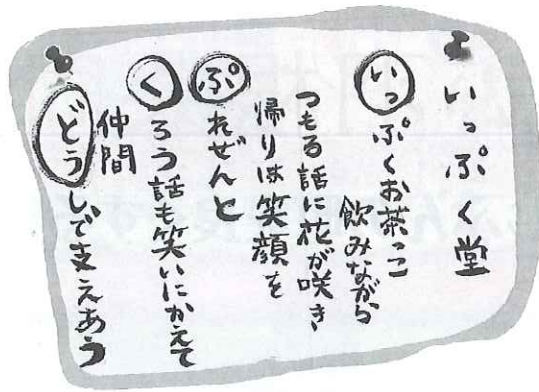 いっぷく堂
いっぷくお茶っこ
飲みながら
つもる話に花が咲き
帰りは笑顔を
ぷれぜんと
くろう話も笑いにかえて
仲間
どうしで支えあう